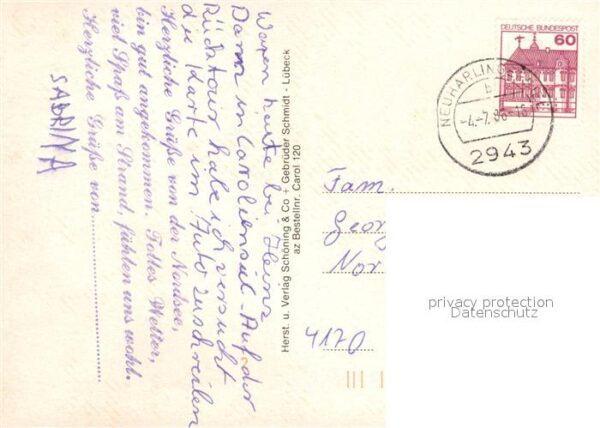 Waren heute bei Heinz
Dann in Carolinensiel. Auf der
Rücktour habe ich versucht
die Karte im Auto zuschreiben
Herzliche Grüße von der Nordsee,
bin gut angekommen. Tolles Wetter,
viel Spaß am Strand, fühlen uns wohl.
Herzliche Grüße von
SABRINA
Herst. u. Verlag Schöning & Co + Gebrüder Schmidt - Lübeck
az Bestellnr. Carol 120
DEUTSCHE BUNDESPOST
60
NEUHARLINGERSIEL
b
-4.-7.86-16
2943
Fam.
Geor
Nor
4170
privacy protection
Datenschutz